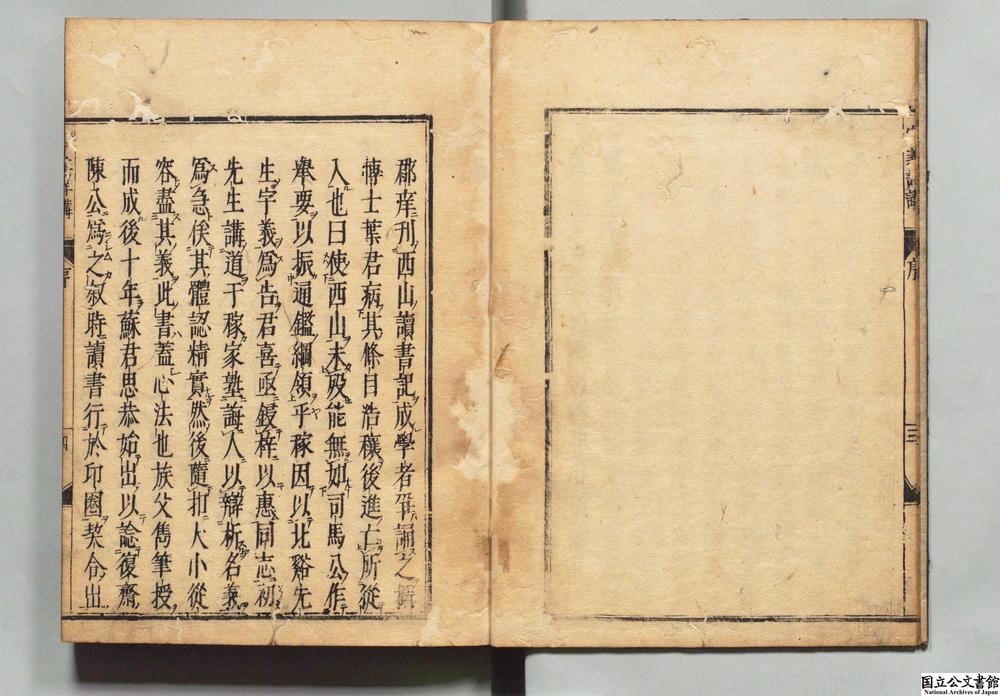 郡庠刊西山讀書記成學者爭誦之
愽士葉君病其條目浩穰後進亡所從
入也曰使西山未歿能無如司馬公作
舉要以振通鑑綱領乎稼因以北谿先
生字義爲告君喜亟鋟梓以惠同志初
先生講道于稼家塾誨人以辯析名義
爲急俟其體認精實然後隨扣大小從
容盡其義此書蓋心法也族父雋筆授
而成後十年蘇君思恭始出以諗復齋
陳公爲之敘時讀書行於印圏契合出
序
三
序
四
国立公文書館
National Archives of Japan